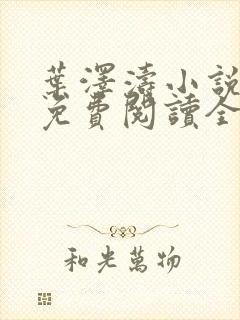 葉澤濤小說
免費閱讀全
和光萬物